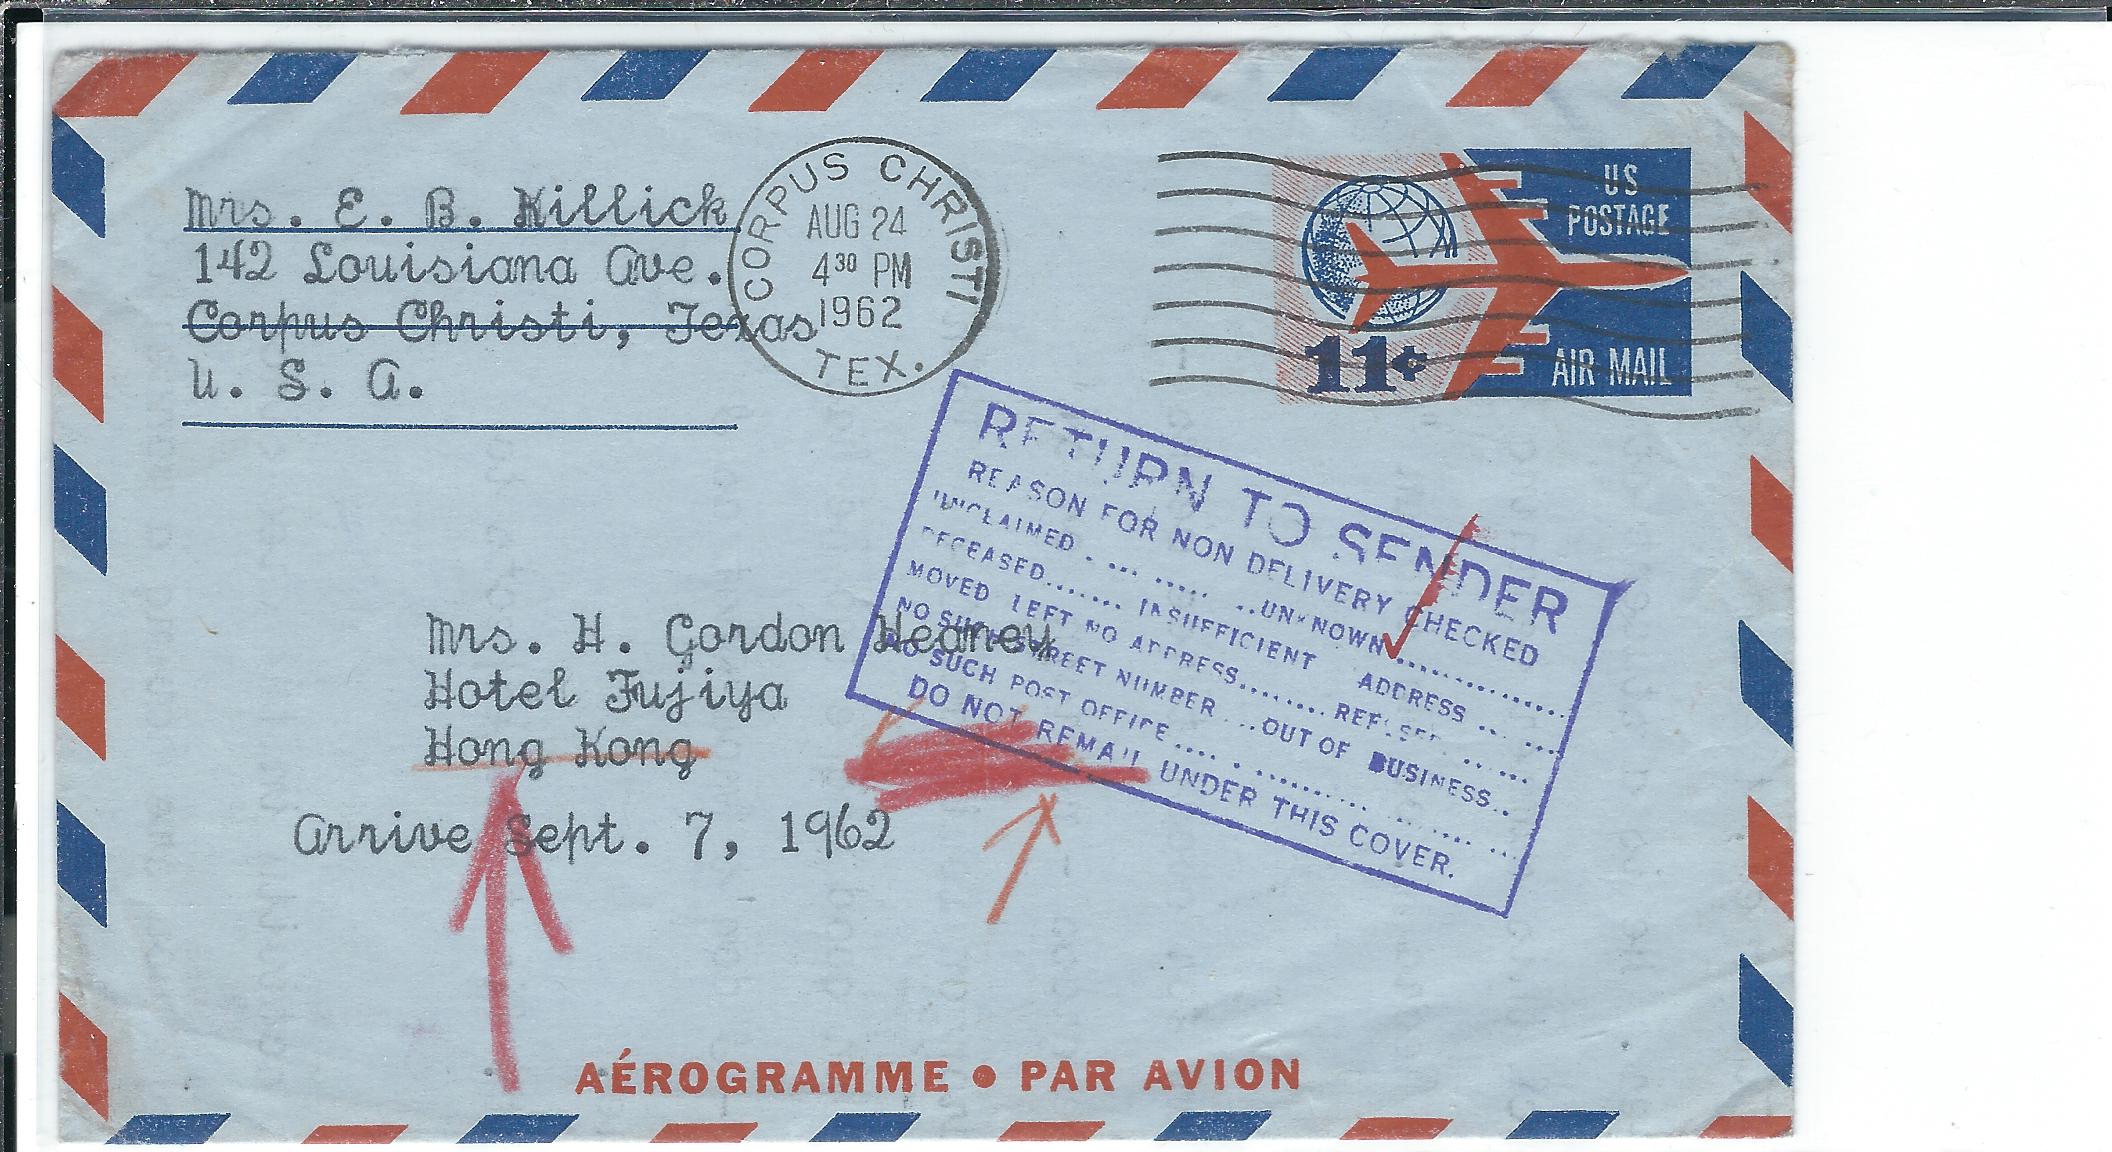 Mrs. E. B. Killick
142 Louisiana Ave.
Corpus Christi, Texas
U. S. A.
CORPUS CHRISTI
AUG 24
4 30 PM
1962
TEX.
US
POSTAGE
11¢
AIR MAIL
RETURN TO SENDER
REASON FOR NON DELIVERY CHECKED
UNCLAIMED . ... ..... ..UNKNOWN..............
DECEASED....... INSUFFICIENT ADDRESS .. ....
MOVED LEFT NO ADDRESS....... REFUSED .. ....
NO SUCH STREET NUMBER ...OUT OF BUSINESS..
NO SUCH POST OFFICE .... . .............. ....... ...
DO NOT REMAIL UNDER THIS COVER.
Mrs. H. Gordon Heaney
Hotel Fujiya
Hong Kong
Arrive Sept. 7, 1962
AÉROGRAMME • PAR AVION